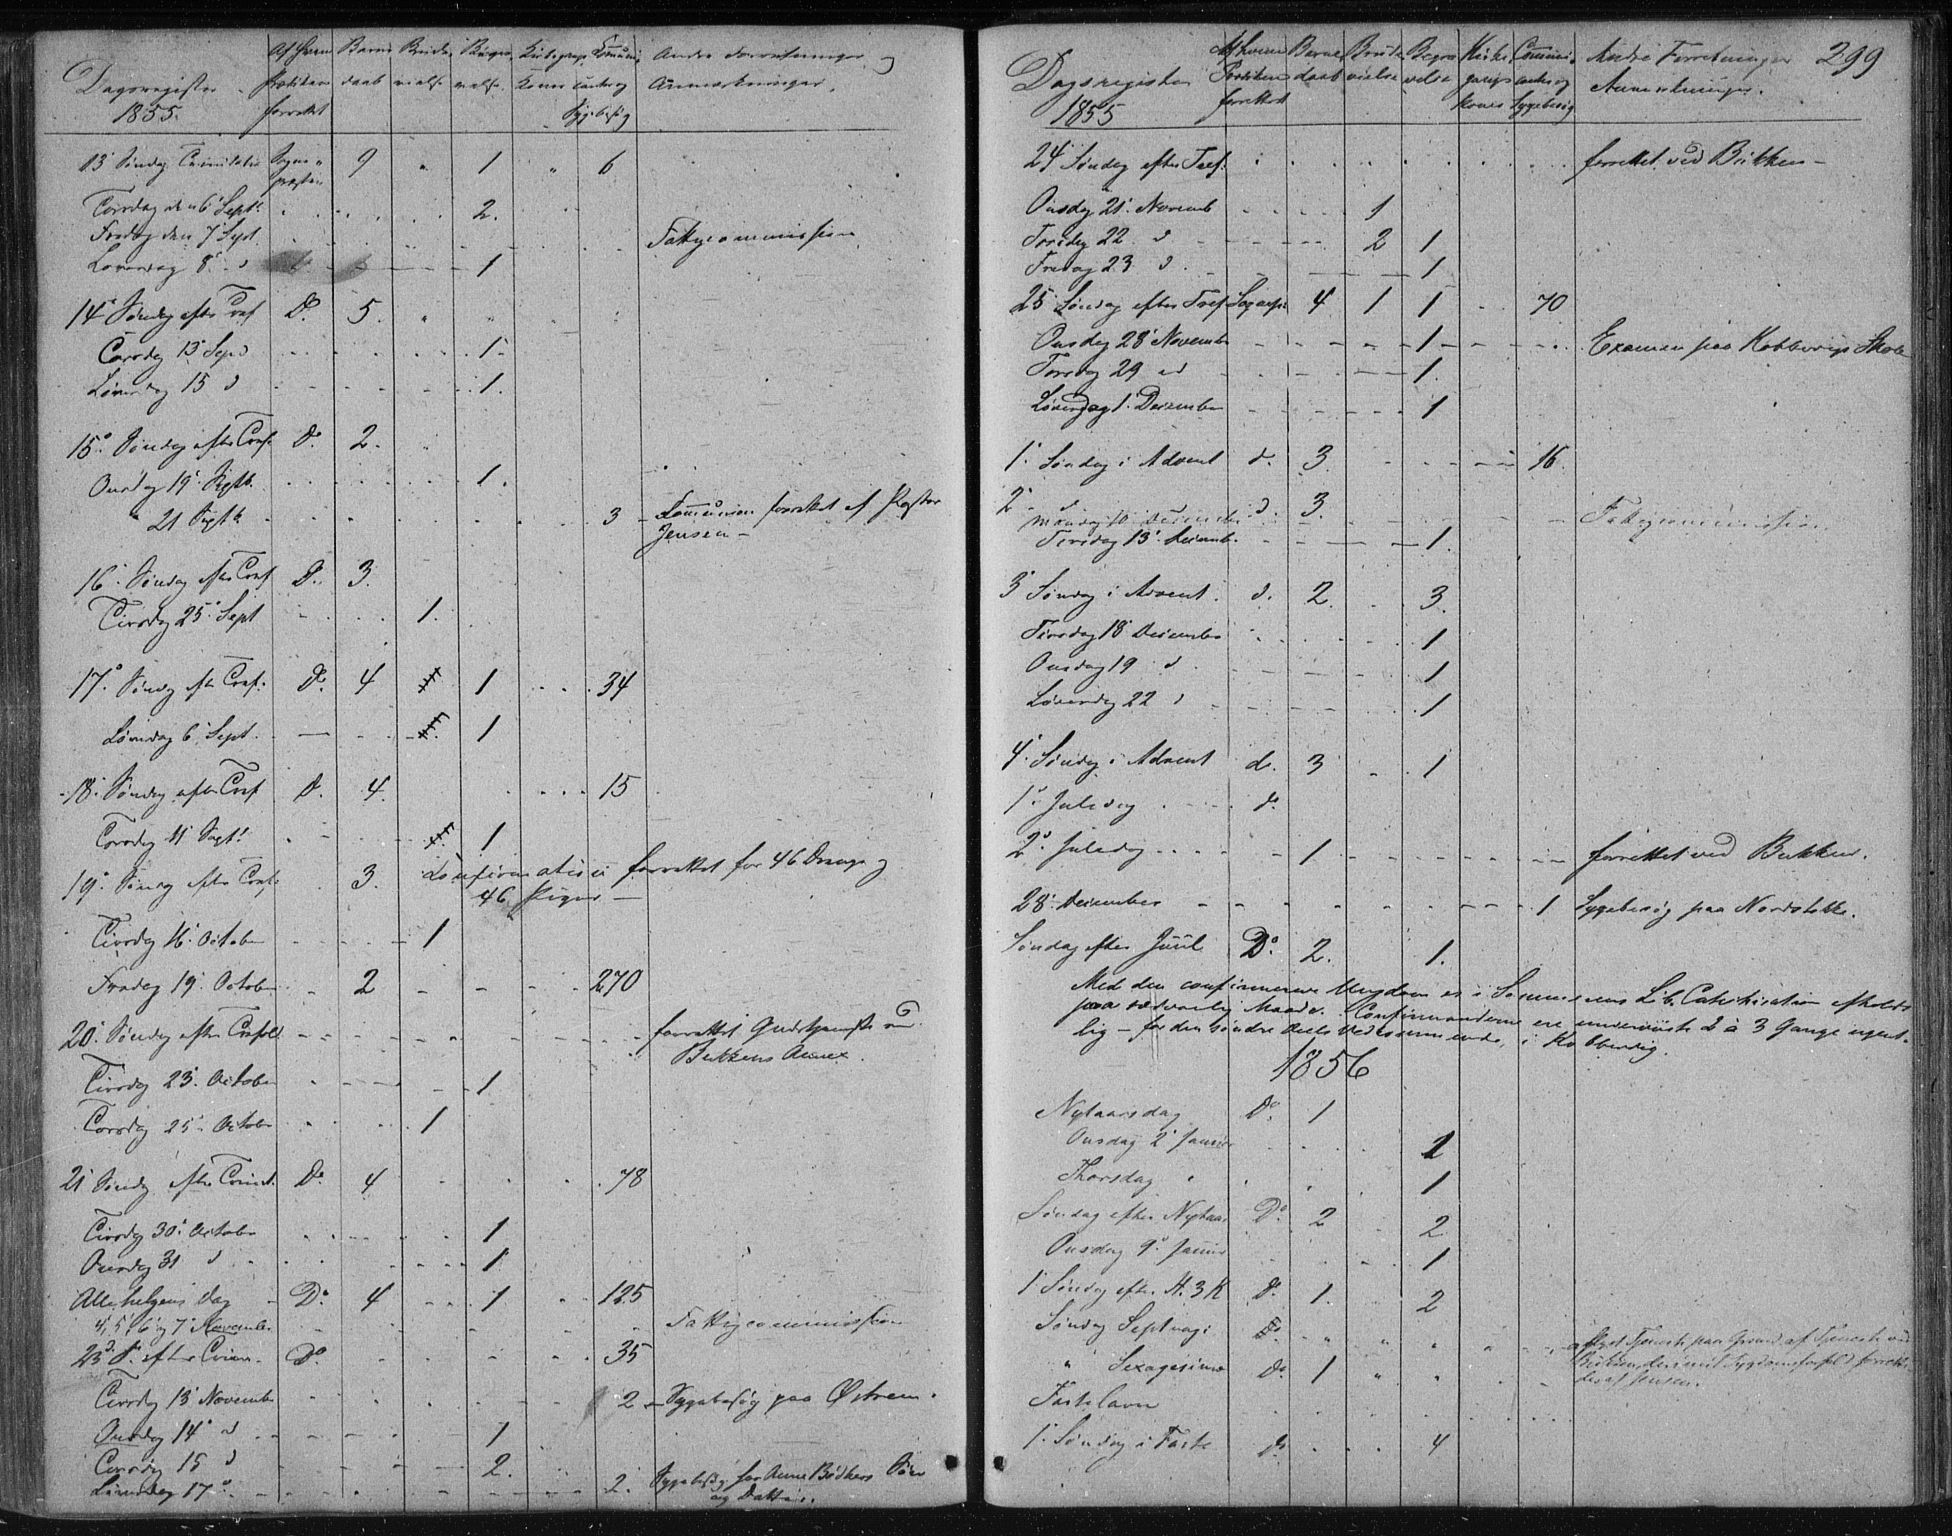 Dagsregister 1855.
Af hvem Prætiken forrettet
Barne daab
Brude vielse
Begra velse
Kirkegangs Koner
Communicanter og Sygebesøg
Andre Forretninger og Anmærkninger.
13 Søndag Trinitatis Sogne præsten 9 " 1 " 6
Torsdag den 6 Septr 2.
Fredag den 7 Sept Fattigcommission
Løverdag 8 d 1
14 Søndag efter Tref D. 5.
Torsdag 13 Sept 1.
Løverdag 15 d 1.
15 Søndag efter Tref. D. 2.
Onsdag 19 Septb. 1.
21 Septb. 3 Communion forrettet af Pastor
Jensen
16 Søndag efter Tref D. 3.
Tirsdag 25 Sept 1.
17 Søndag eft Tref. D. 4 1 34
Løverdag 6 Sept. 1
18 Søndag efter Tref D. 4. 15
Torsdag 11 Sept. 1
19 Søndag efter Tref. 3. Confirmation forrettet for 46 Drenge og
46 Piger
Tirsdag 16 October 1
Fredag 19 October 2 270
20 Søndag efter Trefold forrettet Gudstjeneste ved
Bukkens Annex.
Tirsdag 23. October 1
Torsdag 25. October 1
21 Søndag efter Trinit. D. 4 78
Tirsdag 30. October 1
Onsdag 31 d 1
Allehelgens dag D. 4 1 125
4, 5, 6 og 7 November Fattigcommission
23 S. efter Trin. D. 35
Tirsdag 13 Novembr 2 Sygebesøg paa Østrem.
Onsdag 14 d 1
Torsdag 15 d 2.
Løverdag 17 2. Sygebesøg for Anne Bødkers Søn
og Datter.
299
Dagsregister 1855
Af hvem Prætiken forrettet
Barne daab
Brude vielse
Begra velse
Kirke gangs Koner
Communicanter og Sygebesøg
Andre Forretninger Anmærkninger.
24 Søndag efter Tref. forrettet ved Bukken
Onsdag 21 Novemb 1
Torsdag 22 d 2 1
Fredag 23 d 1
25 Søndag efter Tref Sognepr 4 1 1 70
Onsdag 28 Novembr 1 Examen paa Kobbervigs Skole
Torsdag 29 d 1.
Løverdag 1. December 1
1. Søndag i Advent d. 3. 16.
2. d d. 3.
Mandag 10 December Fattigcommission
Torsdag 13. Decemb. 1.
3 Søndag i Advent d. 2. 3.
Tirsdag 18 December 1
Onsdag 19 d 1
Løverdag 22 d 1
4. Søndag i Advent d. 3 1
1. Juledag d.
2. Juledag 1 forrettet ved Bukken.
28. December 1 Sygebesøg paa Nordstokke.
Søndag efter Juul D. 2. 1.
Med den confirmerede Ungdom er i Sommerens Løb Catechisation afholdt
paa sædvanlig Maade. Confirmanderne ere underviste 2 à 3 Gange ugent-
lig - for den søndre Deels Vedkommende, i Kobbervig.
1856
Nytaarsdag D. 1
Onsdag 2 Januar 2
Thorsdag 1
Søndag efter Nytaar D. 2 2
Onsdag 9. Januar 1
1 Søndag efter H. 3 K D. 1. 2
Søndag Septuag. aflyst Tjeneste paa Grund af Tjeneste ved
Bukken
af Jensen.
" Sexagesima D. 1
Fastelavn
1. Søndag i Faste D. 4